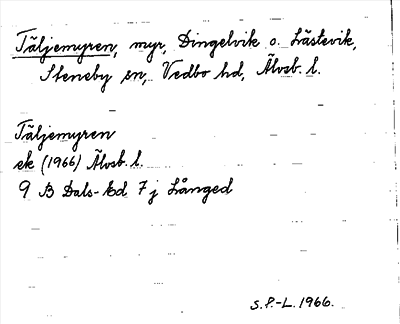 Täljemyren, myr, Dingelvik o. Lästevik,
Steneby sn, Vedbo hd, Älvsb. l.
Täljemyren
ek (1966) Älvsb. l.
9 B Dals-Ed 7 j Långed
S.P.-L. 1966.